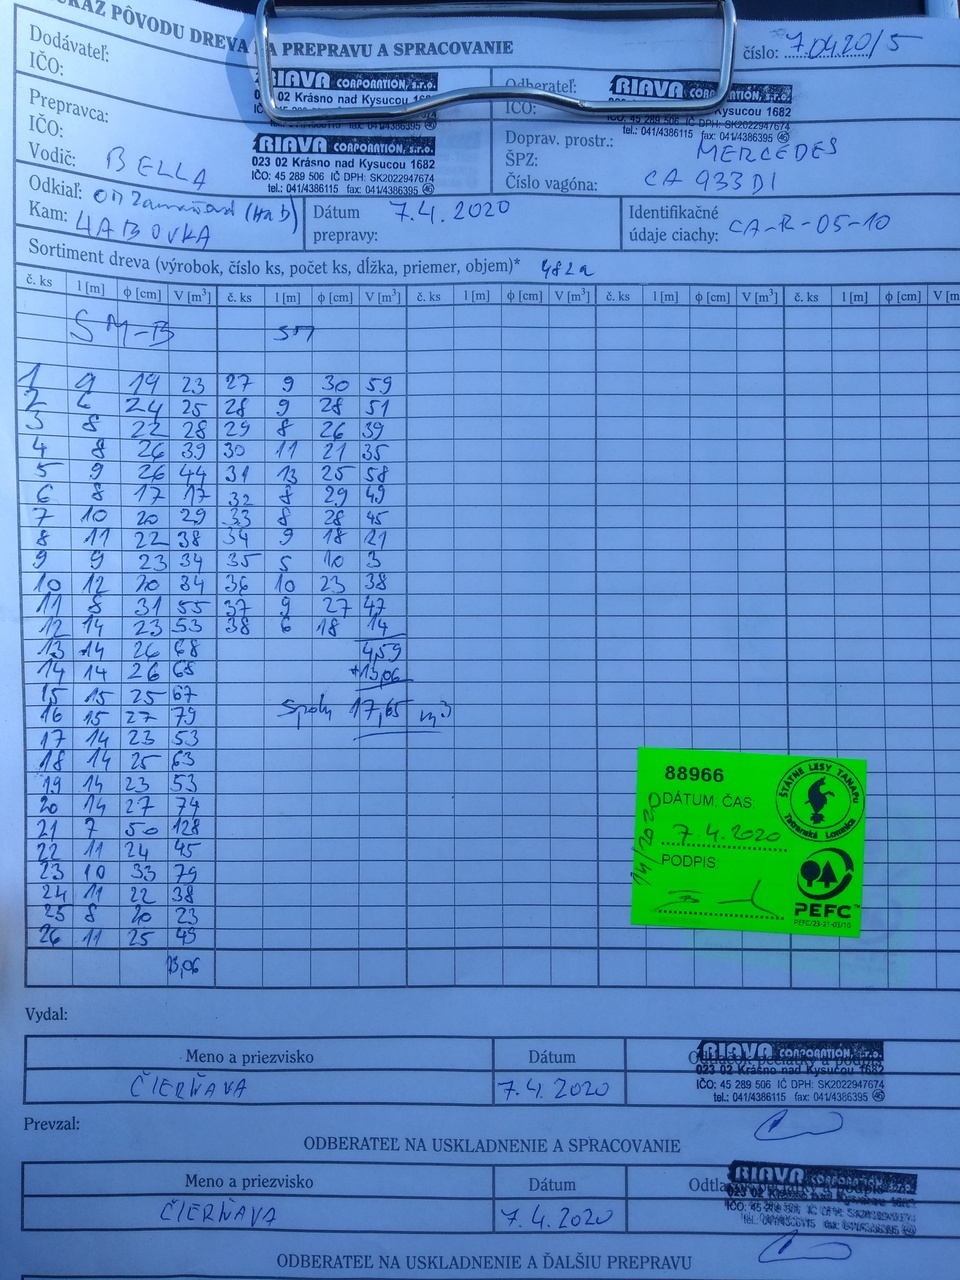 KAZ PÔVODU DREVA NA PREPRAVU A SPRACOVANIE
číslo: 7.0420/5
Dodávateľ:
IČO:
RIAVA CORPORATION, s.r.o.
02 Krásno nad Kysucou 1682
Odberateľ:
IČO:
RIAVA CORPORATION, s.r.o.
Krásno nad Kysucou 1682
IČO: 45 289 506 IČ DPH: SK2022947674
tel.: 041/4386115 fax: 041/4386395 46
Prepravca:
IČO:
Vodič: BELLA
RIAVA CORPORATION, s.r.o.
023 02 Krásno nad Kysucou 1682
IČO: 45 289 506 IČ DPH: SK2022947674
tel.: 041/4386115 fax: 041/4386395 46
Doprav. prostr.: MERCEDES
ŠPZ:
Číslo vagóna: CA 933DI
Odkiaľ:
Kam: HABOVKA
Dátum
prepravy: 7.4.2020
Identifikačné
údaje ciachy: CA-R-05-10
Sortiment dreva (výrobok, číslo ks, počet ks, dĺžka, priemer, objem)*
č. ks l [m] ϕ [cm] V [m³] č. ks l [m] ϕ [cm] V [m³] č. ks l [m] ϕ [cm] V [m³] č. ks l [m] ϕ [cm] V [m³] č. ks l [m] ϕ [cm] V [m
SM-B SM
1 9 19 23 27 9 30 59
2 6 24 25 28 9 28 51
3 8 22 28 29 8 26 39
4 8 26 39 30 11 21 35
5 9 26 44 31 13 25 58
6 8 17 17 32 8 29 49
7 10 20 29 33 8 28 45
8 11 22 38 34 9 18 21
9 9 23 34 35 5 10 3
10 12 20 34 36 10 23 38
11 8 31 55 37 9 27 47
12 14 23 53 38 6 18 14
13 14 26 68 4,59
14 14 26 68 +13,06
15 15 25 67
16 15 27 79 Spolu 17,65 m3
17 14 23 53
18 14 25 63
19 14 23 53
20 14 27 74
21 7 50 128
22 11 24 45
23 10 33 79
24 11 22 38
25 8 20 23
26 11 25 49
13,06
88966
DÁTUM; ČAS:
7.4.2020
14/2020
PODPIS:
ŠTÁTNE LESY TANAPu
Tatranská Lomnica
PEFC™
PEFC/23-21-03/10
Vydal:
Meno a priezvisko Dátum
ČIERŇAVA 7.4.2020
RIAVA CORPORATION, s.r.o.
023 02 Krásno nad Kysucou 1682
IČO: 45 289 506 IČ DPH: SK2022947674
tel.: 041/4386115 fax: 041/4386395 46
Prevzal:
ODBERATEĽ NA USKLADNENIE A SPRACOVANIE
Meno a priezvisko Dátum
ČIERŇAVA 7.4.2020
RIAVA CORPORATION, s.r.o.
023 02 Krásno nad Kysucou
ODBERATEĽ NA USKLADNENIE A ĎALŠIU PREPRAVU